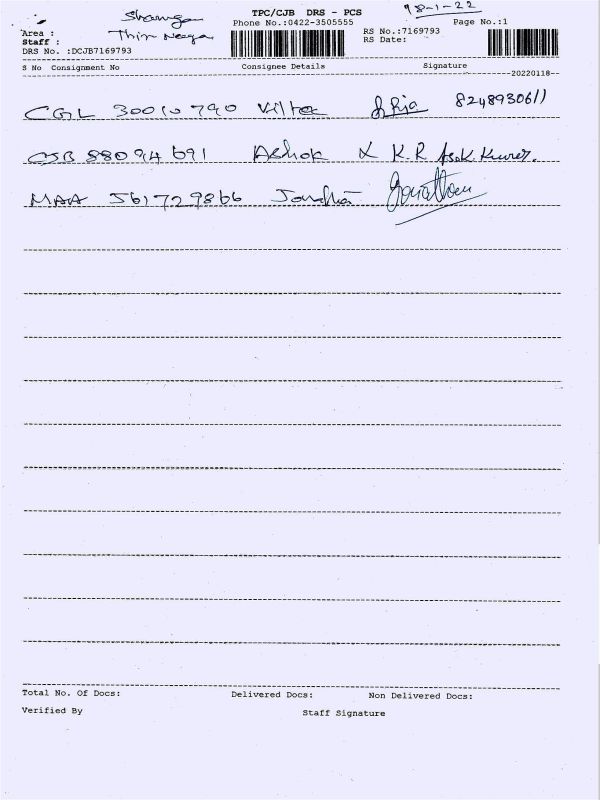 TPC/CJB DRS - PCS
Phone No.:0422-3505555
Page No.:1
Area :
Staff :
DRS No. :DCJB7169793
RS No.:7169793
RS Date:
S No Consignment No Consignee Details Signature
20220118
CGL 30010790 8248930611
CJB 88094691 Ashok K.R Asok Kumar.
MAA 561729866 Jonathan
Total No. Of Docs: Delivered Docs: Non Delivered Docs:
Verified By Staff Signature